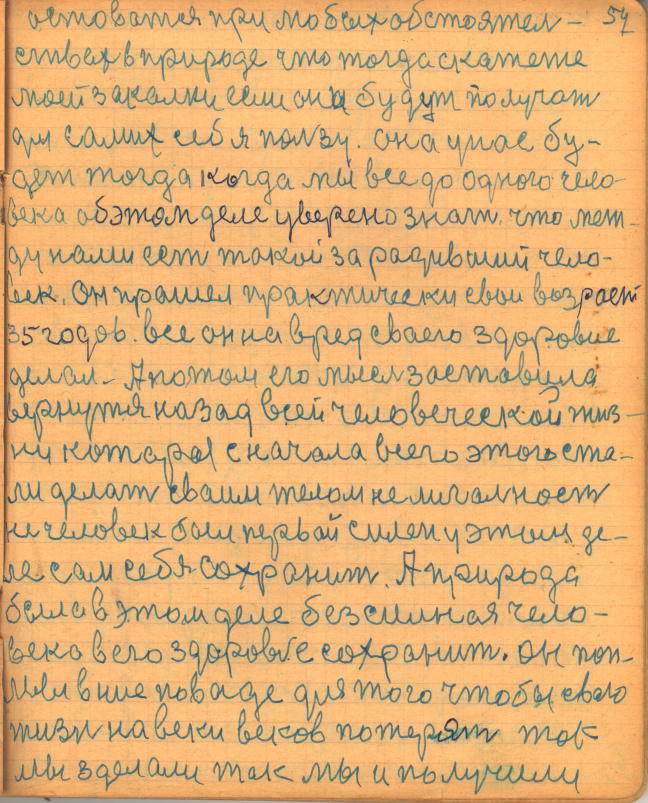 остоватся при любых обстоятел- 54
ствах в природе что тогда скажете
моей закалки если она будут получат
дя самих себя ползу. она унас бу-
дет тогда когда мы все до одного чело-
века обэтом деле уверено знат. что меж-
ду нами ест такой зарадивший чело-
век. Он прошел практически свои возраст
35 годов. все он на вред сваего здоровие
делал- А потом его мысл заставила
вернутя назад всей человеческой жиз-
ни котора с начала всего этого ста-
ли делат сваим телом не лигалност
не человек был первай силен у этым де-
ле сам себя сохранит. А природа
была в этом деле безсилная чело-
века в его здоровие сохранит. он поп-
лыл в ние по ваде для того чтобы сваю
жизн на веки веков потерят так
мы зделали так мы и получили